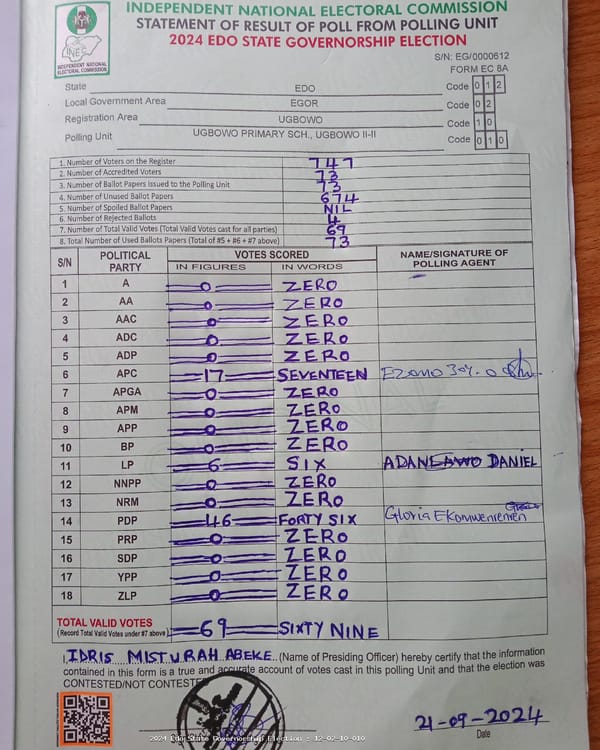 INDEPENDENT NATIONAL ELECTORAL COMMISSION
STATEMENT OF RESULT OF POLL FROM POLLING UNIT
2024 EDO STATE GOVERNORSHIP ELECTION
INEC
INDEPENDENT NATIONAL
ELECTORAL COMMISSION
S/N: EG/0000612
FORM EC 8A
State EDO Code 0 1 2
Local Government Area EGOR Code 0 2
Registration Area UGBOWO Code 1 0
Polling Unit UGBOWO PRIMARY SCH., UGBOWO II-II Code 0 1 0
1. Number of Voters on the Register 747
2. Number of Accredited Voters 73
3. Number of Ballot Papers issued to the Polling Unit 73
4. Number of Unused Ballot Papers 674
5. Number of Spoiled Ballot Papers NIL
6. Number of Rejected Ballots 4
7. Number of Total Valid Votes (Total Valid Votes cast for all parties) 69
8. Total Number of Used Ballots Papers (Total of #5 + #6 + #7 above) 73
S/N POLITICAL PARTY VOTES SCORED NAME/SIGNATURE OF POLLING AGENT
IN FIGURES IN WORDS
1 A 0 ZERO
2 AA 0 ZERO
3 AAC 0 ZERO
4 ADC 0 ZERO
5 ADP 0 ZERO
6 APC 17 SEVENTEEN
7 APGA 0 ZERO
8 APM 0 ZERO
9 APP 0 ZERO
10 BP 0 ZERO
11 LP 6 SIX DANIEL
12 NNPP 0 ZERO
13 NRM 0 ZERO
14 PDP 46 FORTY SIX Gloria
15 PRP 0 ZERO
16 SDP 0 ZERO
17 YPP 0 ZERO
18 ZLP 0 ZERO
TOTAL VALID VOTES 69 SIXTY NINE
(Record Total Valid Votes under #7 above)
I, IDRIS MISTURAH ABEKE (Name of Presiding Officer) hereby certify that the information
contained in this form is a true and accurate account of votes cast in this polling Unit and that the election was
CONTESTED/NOT CONTESTED
21-09-2024
Date
2024 Edo State Governorship Election : 12-02-10-010